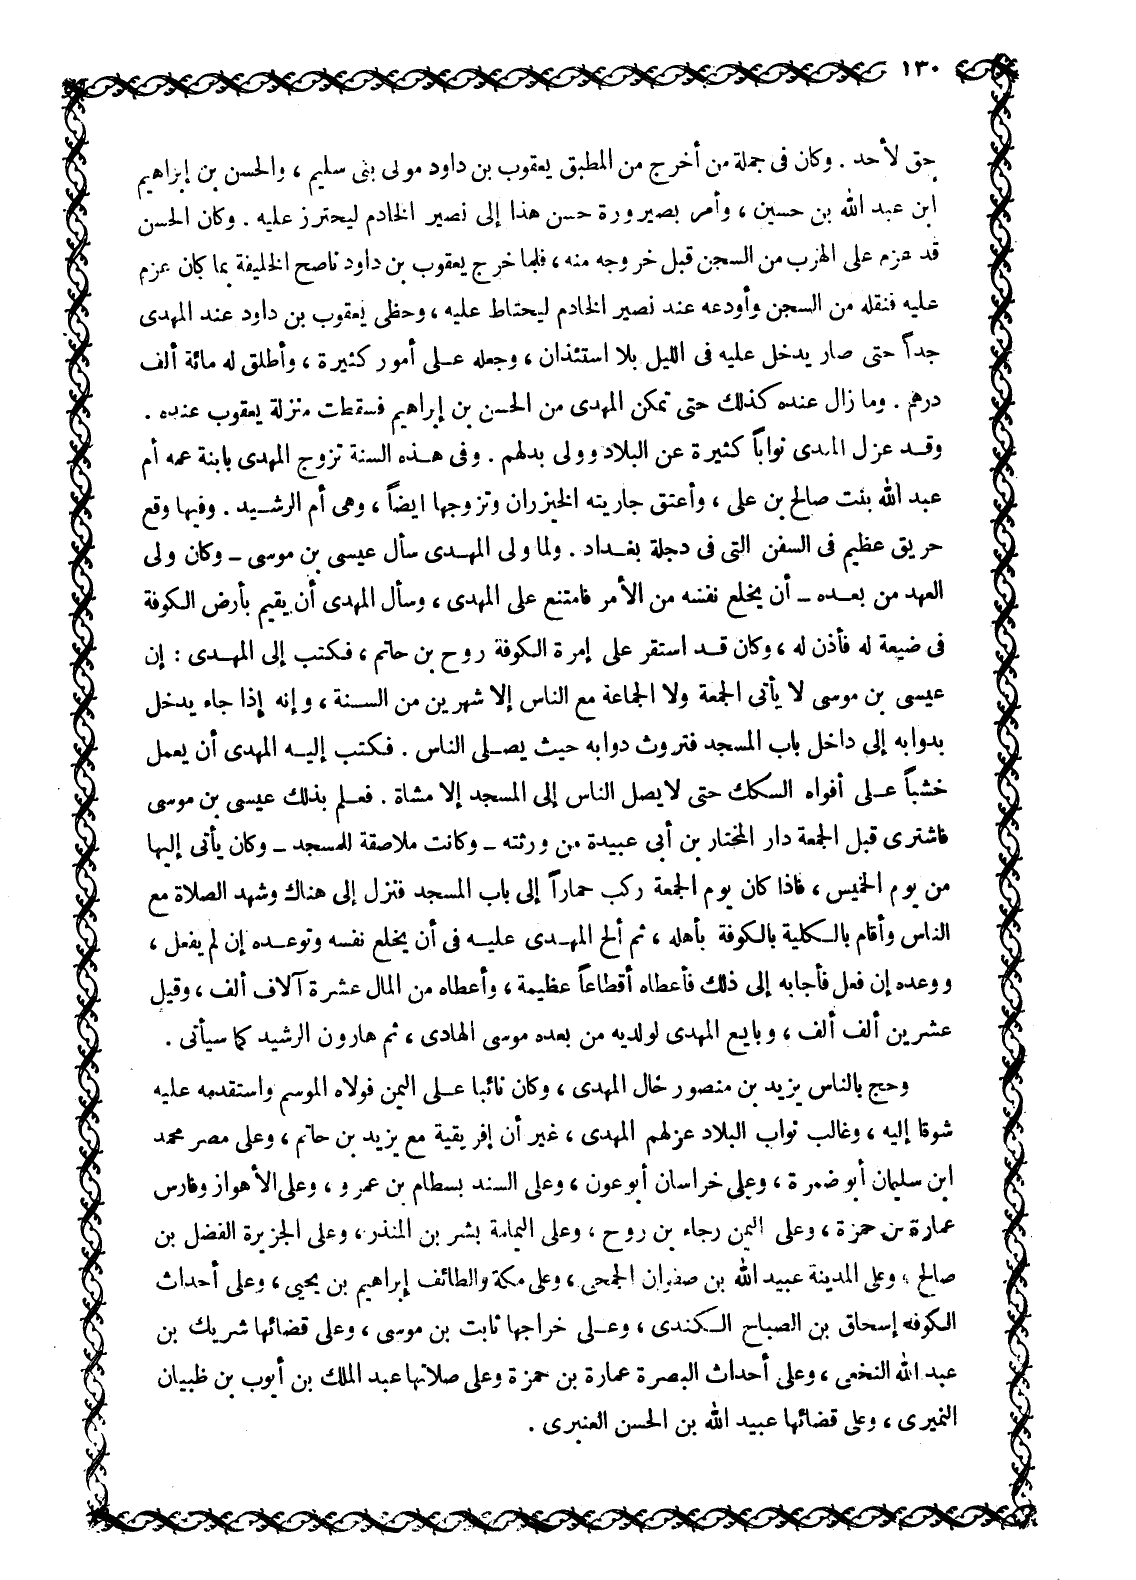 ١٣٠
حق لأحد . وكان فى جملة من أخرج من المطبق يعقوب بن داود مولى بنى سليم ، والحسن بن إبراهيم
ابن عبد الله بن حسين ، وأمر بصيرورة حسن هذا إلى نصير الخادم ليحترز عليه . وكان الحسن
قد عزم على الهرب من السجن قبل خروجه منه ، فلما خرج يعقوب بن داود ناصح الخليفة بما كان عزم
عليه فنقله من السجن وأودعه عند نصير الخادم ليحتاط عليه ، وحظى يعقوب بن داود عند المهدى
جداً حتى صار يدخل عليه فى الليل بلا استئذان ، وجعله على أمور كثيرة ، وأطلق له مائة ألف
درهم . وما زال عنده كذلك حتى تمكن المهدى من الحسن بن إبراهيم فسقطت منزلة يعقوب عنده .
وقد عزل المهدى نواباً كثيرة عن البلاد وولى بدلهم . وفى هذه السنة تزوج المهدى بابنة عمه أم
عبد الله بنت صالح بن على ، وأعتق جاريته الخيزران وتزوجها ايضاً ، وهى أم الرشيد . وفيها وقع
حريق عظيم فى السفن التى فى دجلة بغداد . ولما ولى المهدى سأل عيسى بن موسى – وكان ولى
العهد من بعده – أن يخلع نفسه من الأمر فامتنع على المهدى ، وسأل المهدى أن يقيم بأرض الكوفة
فى ضيعة له فأذن له ، وكان قد استقر على إمرة الكوفة روح بن حاتم ، فكتب إلى المهدى : إن
عيسى بن موسى لا يأتى الجمعة ولا الجماعة مع الناس إلا شهرين من السنة ، وإنه إذا جاء يدخل
بدوابه إلى داخل باب المسجد فتروث دوابه حيث يصلى الناس . فكتب إليه المهدى أن يعمل
خشباً على أفواه السكك حتى لا يصل الناس إلى المسجد إلا مشاة . فعلم بذلك عيسى بن موسى
فاشترى قبل الجمعة دار المختار بن أبى عبيدة من ورثته – وكانت ملاصقة للمسجد – وكان يأتى إليها
من يوم الخميس ، فاذا كان يوم الجمعة ركب حماراً إلى باب المسجد فنزل إلى هناك وشهد الصلاة مع
الناس وأقام بالكلية بالكوفة بأهله ، ثم ألح المهدى عليه فى أن يخلع نفسه وتوعده إن لم يفعل ،
ووعده إن فعل فأجابه إلى ذلك فأعطاه أقطاعاً عظيمة ، وأعطاه من المال عشرة آلاف ألف ، وقيل
عشرين ألف ألف ، وبايع المهدى لولديه من بعده موسى الهادى ، ثم هارون الرشيد كما سيأتى .
وحج بالناس يزيد بن منصور خال المهدى ، وكان نائبا على اليمن فولاه الموسم واستقدمه عليه
شوقا إليه ، وغالب نواب البلاد عزلهم المهدى ، غير أن إفريقية مع يزيد بن حاتم ، وعلى مصر محمد
ابن سليمان أبو ضمرة ، وعلى خراسان أبو عون ، وعلى السند بسطام بن عمرو ، وعلى الأهواز وفارس
عمارة بن حمزة ، وعلى اليمن رجاء بن روح ، وعلى اليمامة بشر بن المنذر ، وعلى الجزيرة الفضل بن
صالح ، وعلى المدينة عبيد الله بن صفوان الجمحى ، وعلى مكة والطائف إبراهيم بن يحيى ، وعلى أحداث
الكوفه إسحاق بن الصباح الكندى ، وعلى خراجها ثابت بن موسى ، وعلى قضائها شريك بن
عبد الله النخعى ، وعلى أحداث البصرة عمارة بن حمزة وعلى صلاتها عبد الملك بن أيوب بن ظبيان
النميرى ، وعلى قضائها عبيد الله بن الحسن العنبرى .